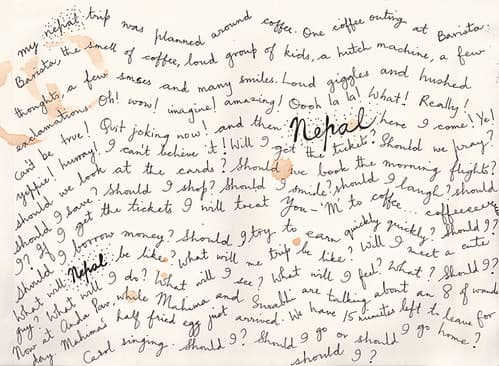 my nepal trip was planned around coffee. One coffee outing at Barista.
Barista, the smell of coffee, loud group of kids, a hutch machine, a few
thoughts, a few smses and many smiles. Loud giggles and hushed
exclamations. Oh! wow! imagine! amazing! Oooh la la! What! Really!
Can't be true! Quit joking now! and then Nepal here I come! Ye!
yeppie! hurray! I can't believe it! Will I get the tickets? Should we pray?
Should we look at the cards? Should we book the morning flights?
should I save? Should I shop? Should I smile? should I laugh? should
I?? If I get the tickets I will treat You - 'M' to coffee... coffeeeeeee
Should I borrow money? Should I try to earn quickly quickly? Should I?
What will Nepal be like? What will me trip be like? Will I meet a cute
guy? What will I do? What will I see? What will I feel? What? Should I?
Now at Anda Pav while Mahima and are talking about an 8 of wands
day. Mahima's half fried egg just arrived. We have 15 minutes left to leave for
Carol singing. Should I? Should I go or should I go home?
should I?